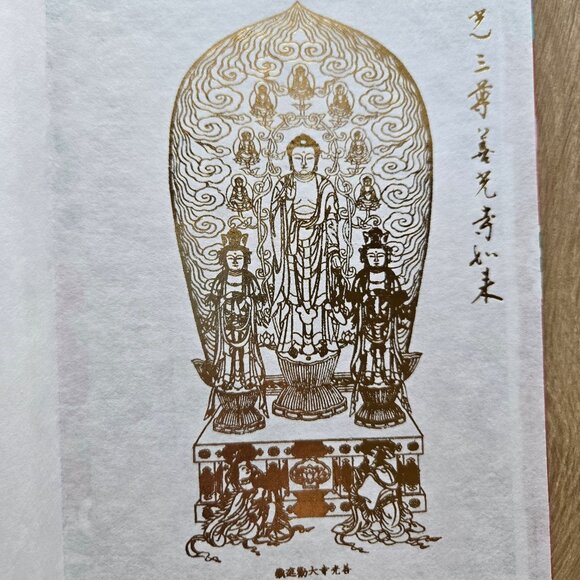 光三尊善光寺如来
善光寺大勧進蔵